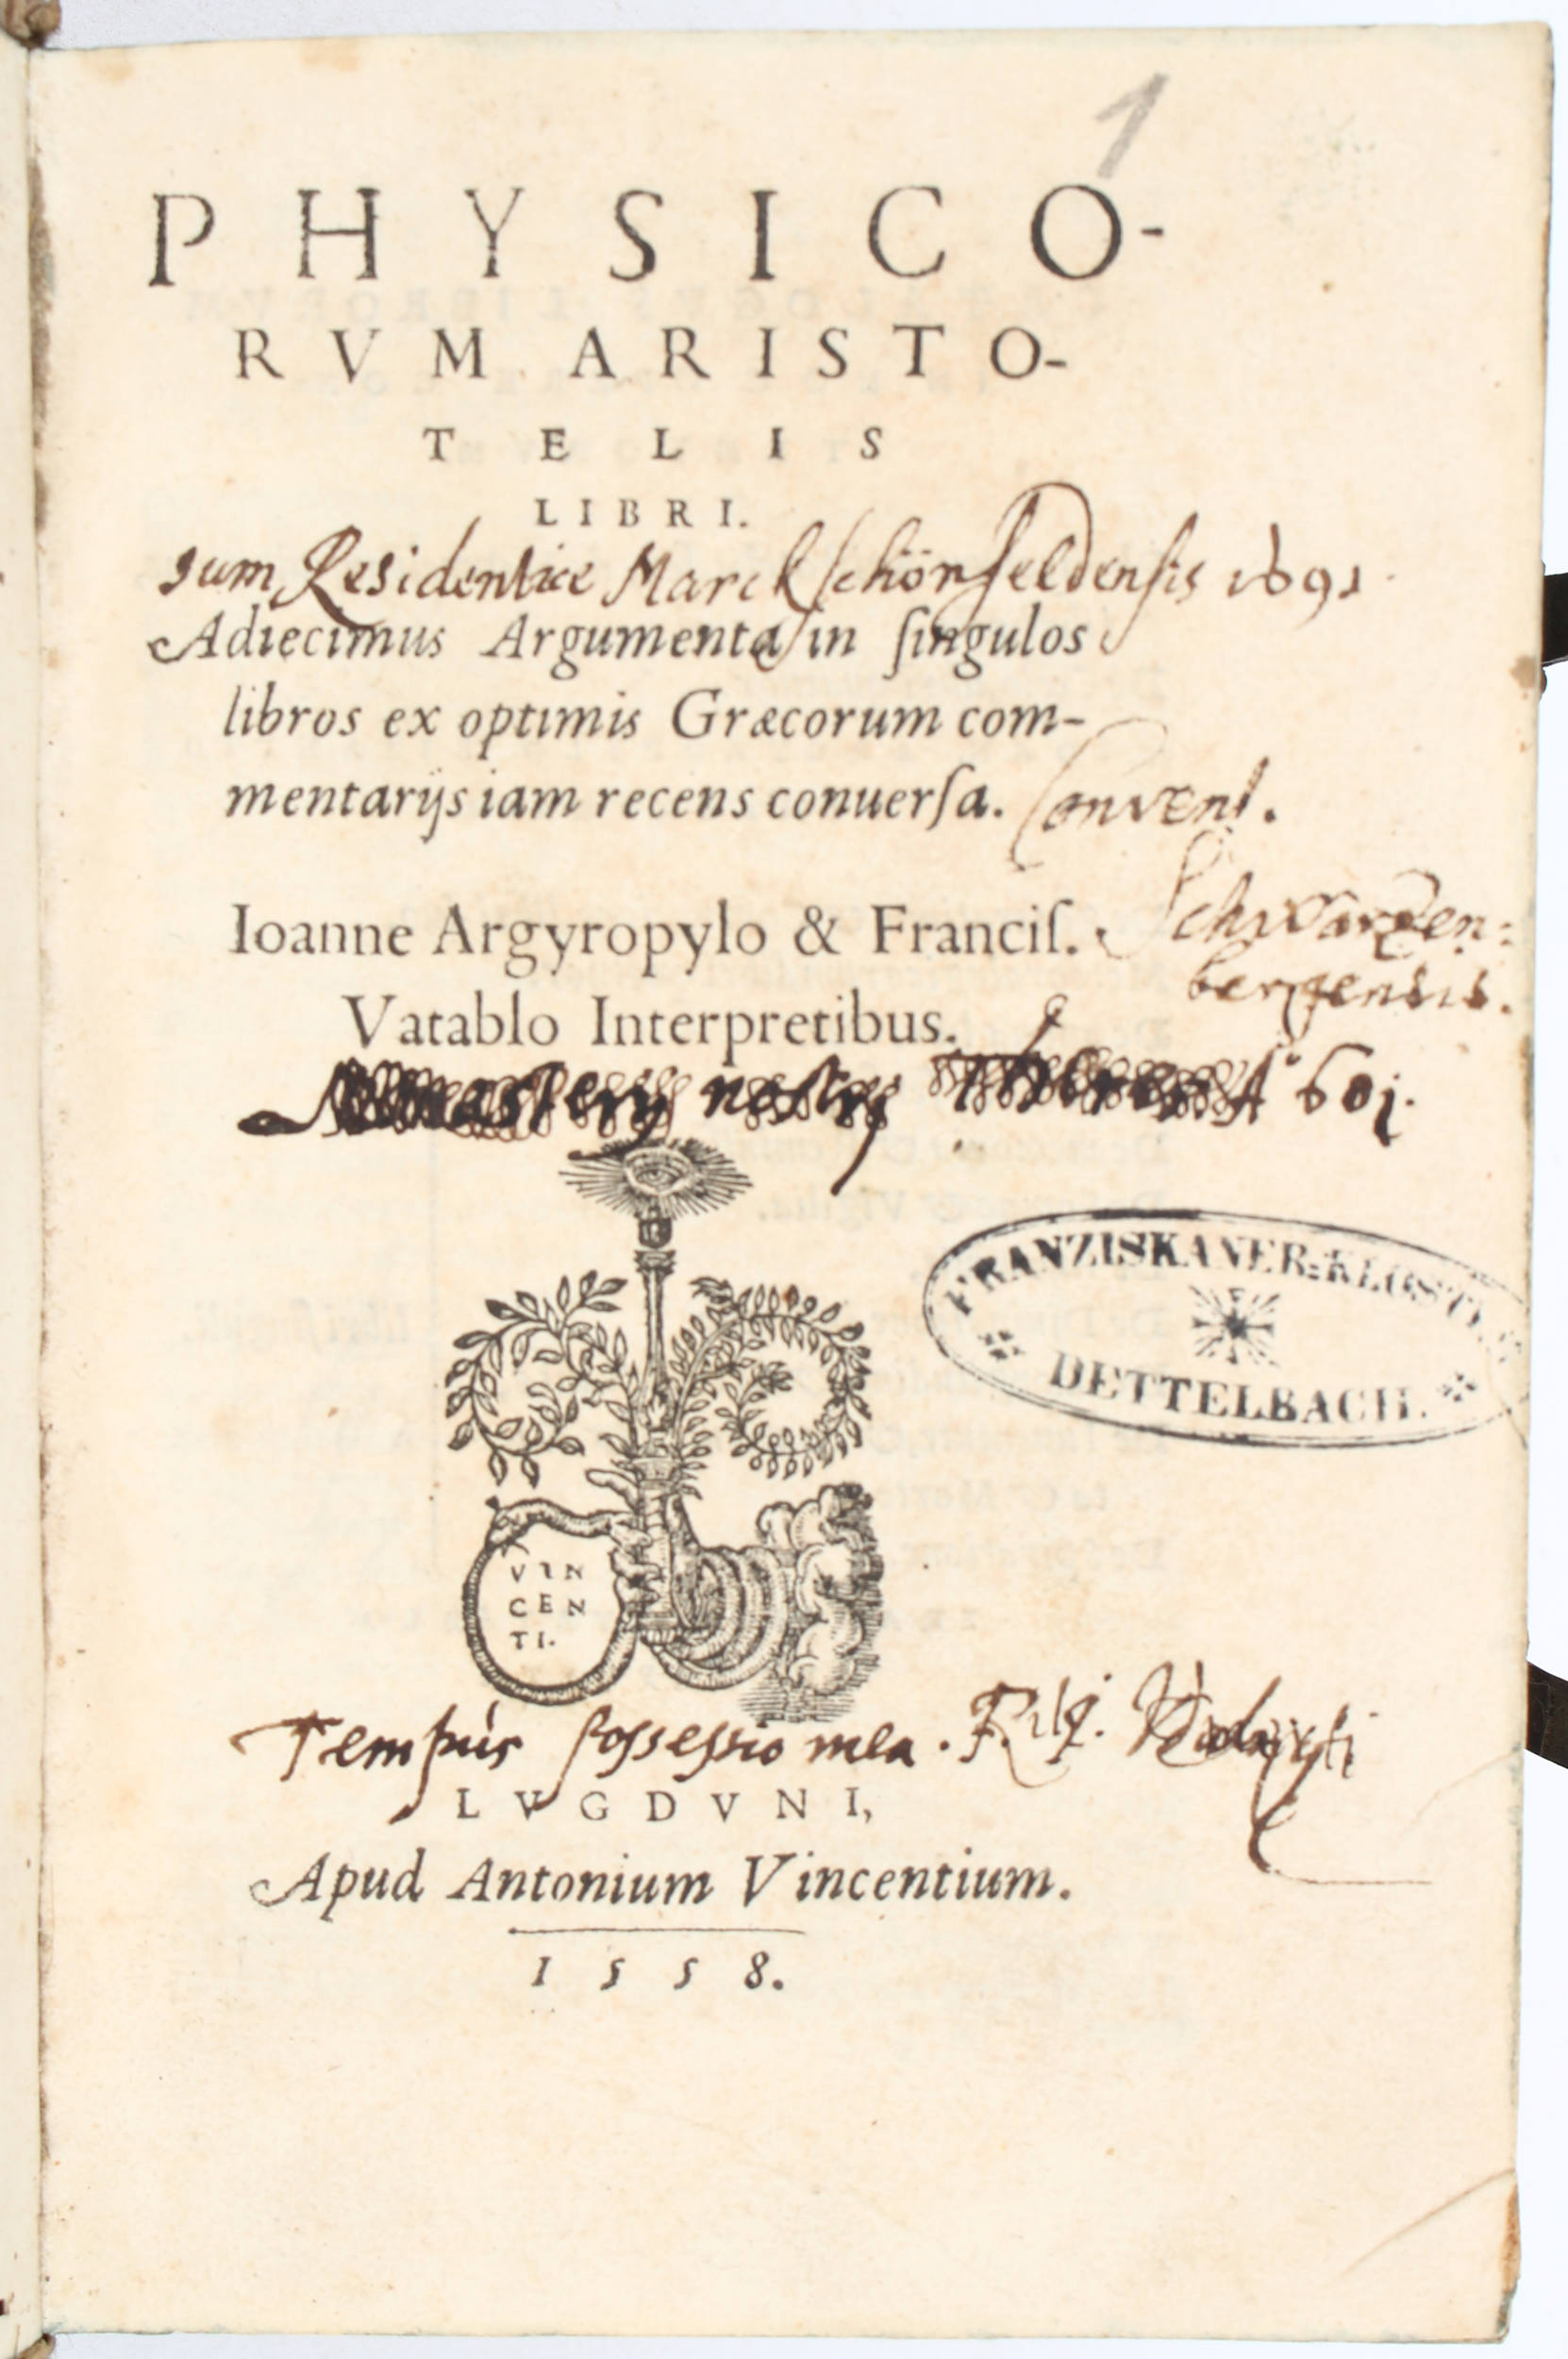 1
PHYSICO-
RVM ARISTO-
TELIS
LIBRI.
sum Residentiæ Marckschönfeldensis 1691
Adiecimus Argumenta in ſingulos
libros ex optimis Græcorum com-
mentarijs iam recens conuerſa.
Convent.
Ioanne Argyropylo & Franciſ.
Schwarzen:
bergensis.
Vatablo Interpretibus.
nostrj Aº 601.
FRANZISKANER=KLOSTER
DETTELBACH.
VIN
CEN
TI.
Tempus possessio mea.
LVGDVNI,
Apud Antonium Vincentium.
1558.